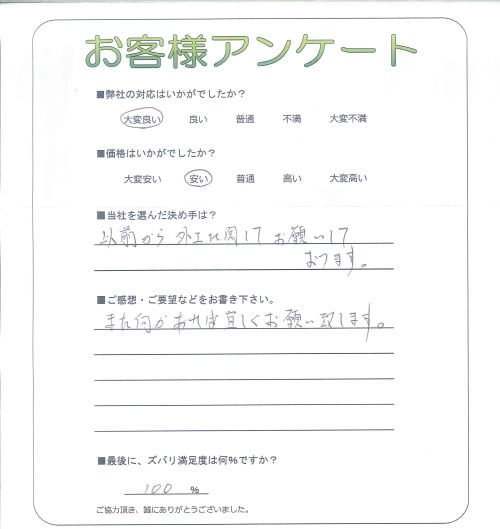 お客様アンケート
■弊社の対応はいかがでしたか？
大変良い 良い 普通 不満 大変不満
■価格はいかがでしたか？
大変安い 安い 普通 高い 大変高い
■当社を選んだ決め手は？
以前から外工に関してお願いして
おります。
■ご感想・ご要望などをお書き下さい。
また何かあれば宜しくお願い致します。
■最後に、ズバリ満足度は何％ですか？
100 ％
ご協力頂き、誠にありがとうございました。